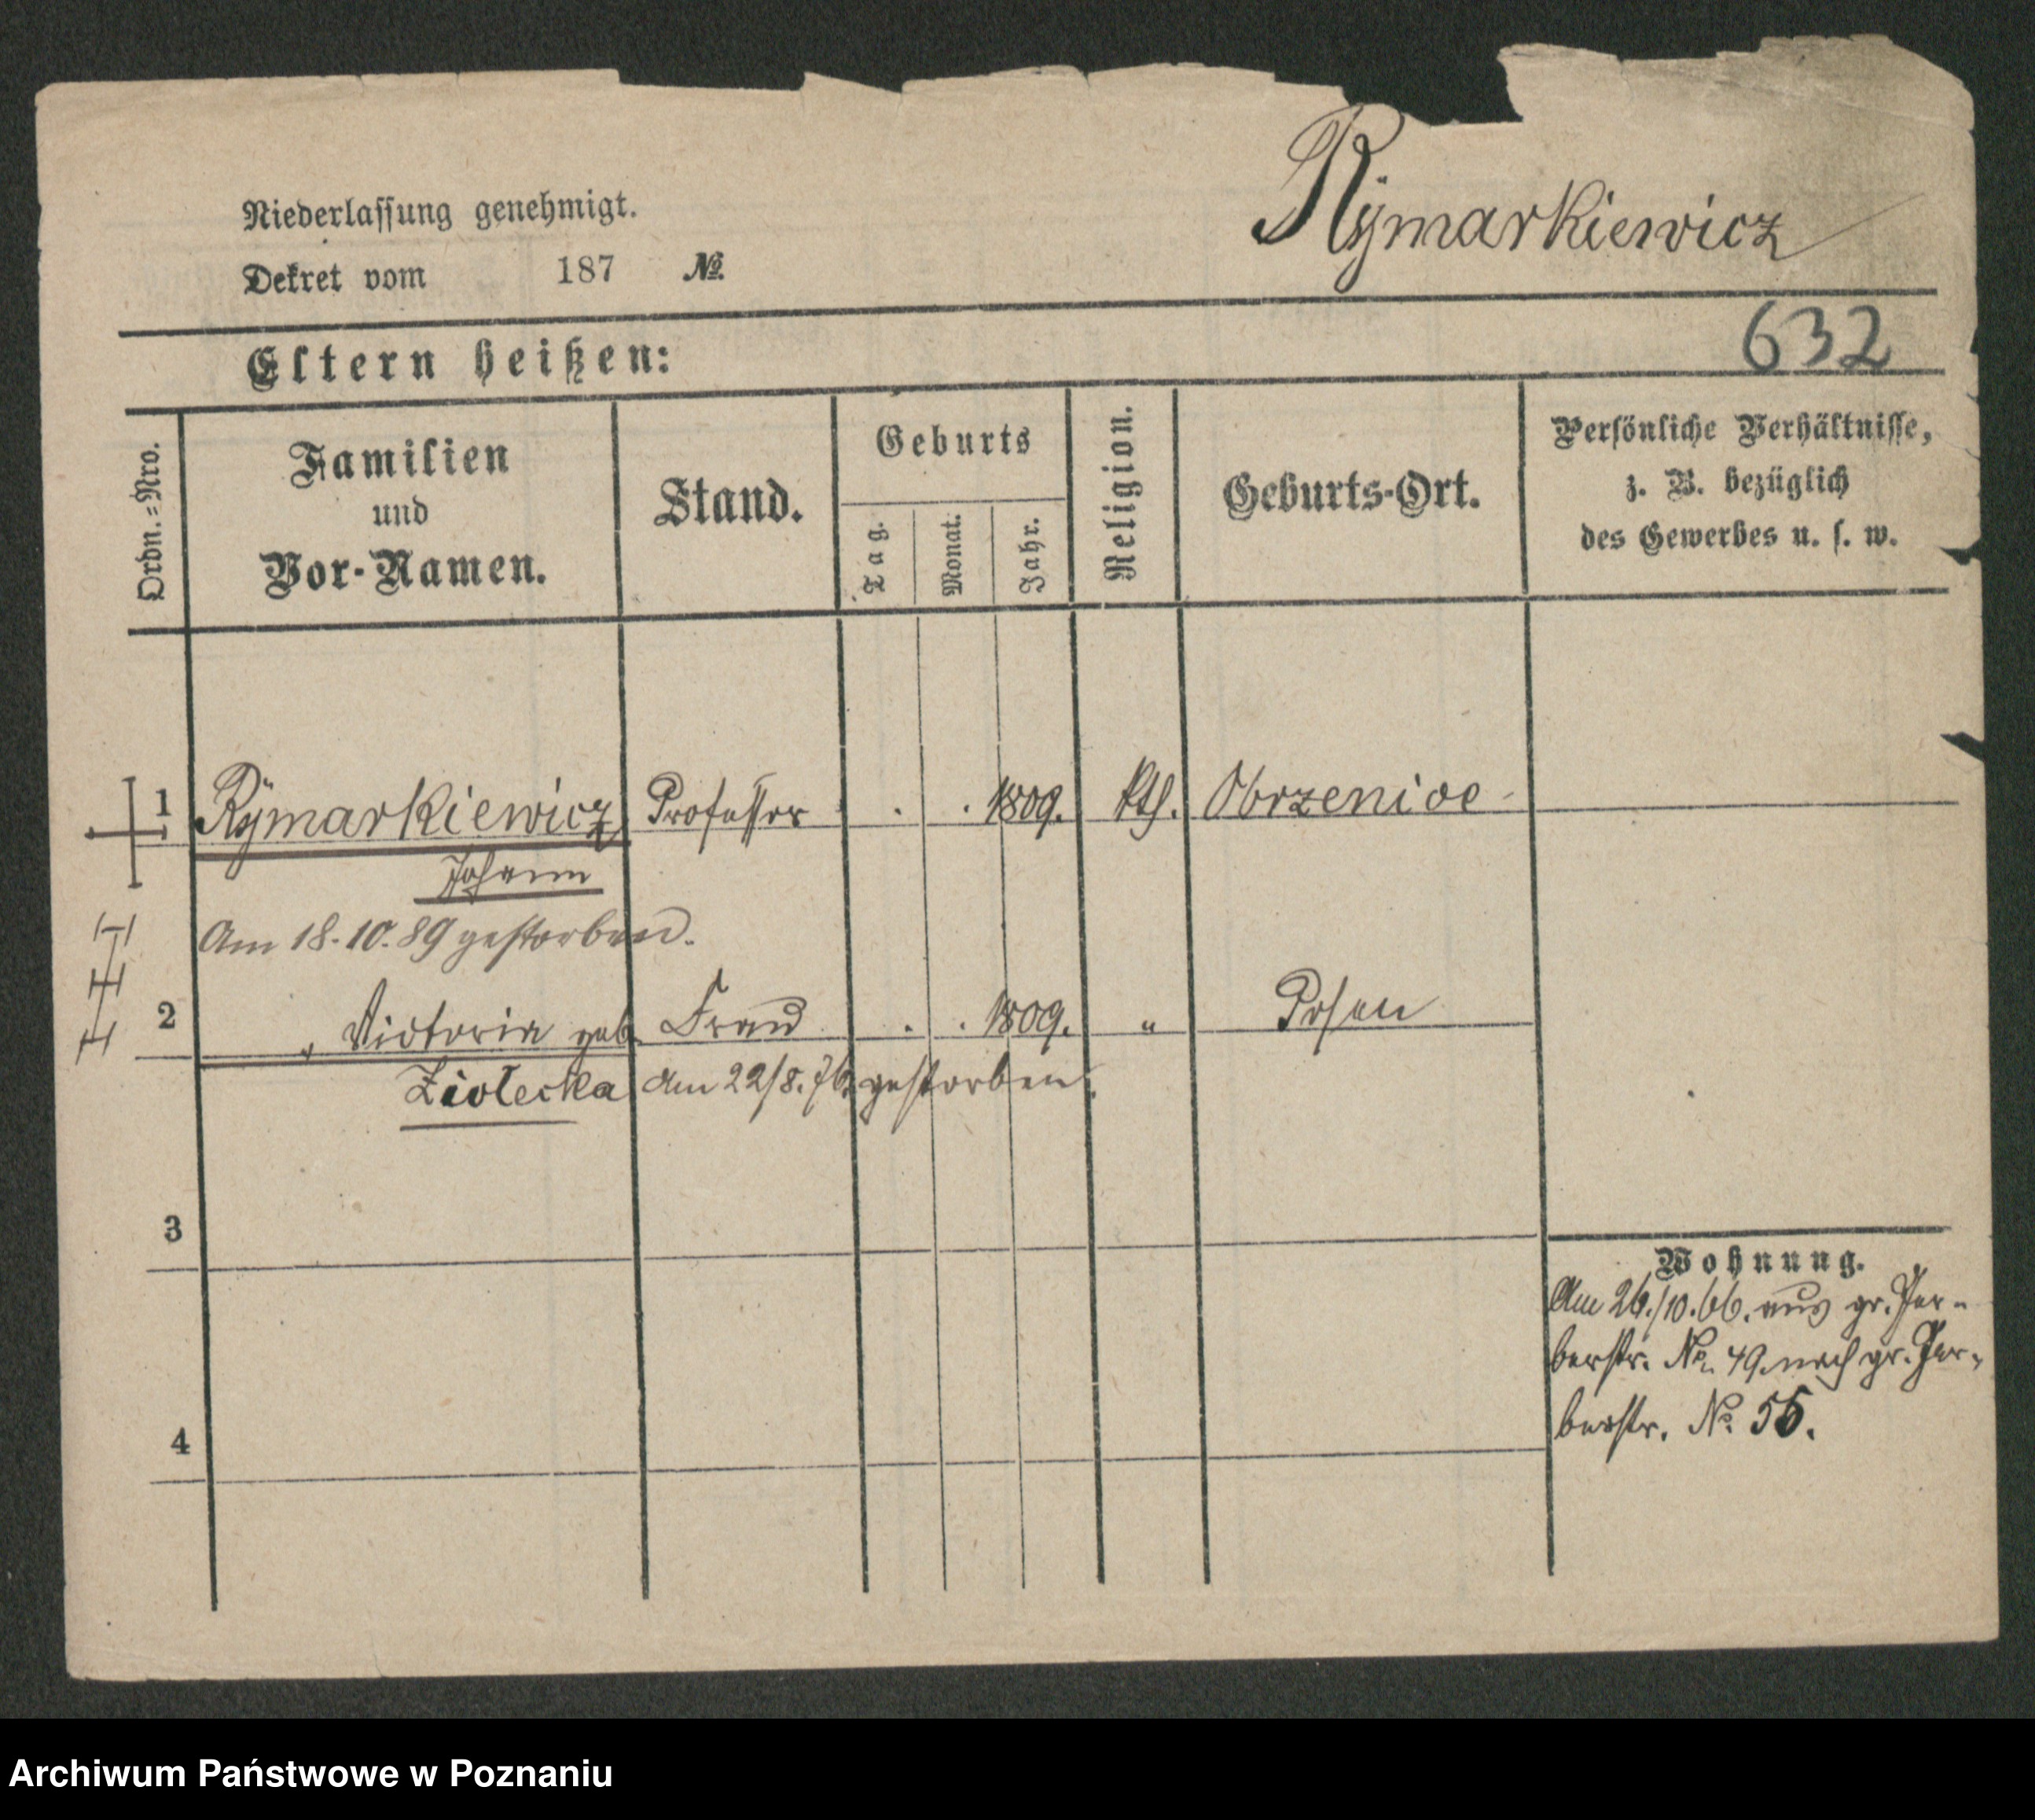 Rÿmarkiewicz
Niederlassung genehmigt.
Dekret vom 187 №
632
Eltern heißen:
Ordn.=Nro.
Familien
und
Vor-Namen.
Stand.
Geburts
Tag.
Monat.
Jahr.
Religion.
Geburts-Ort.
Persönliche Verhältnisse,
z. B. bezüglich
des Gewerbes u. s. w.
1 Rÿmarkiewicz Professor . . 1809. kth. Obrzenice
Johann
Am 18.10.89 gestorben.
2 " Victoria geb. Frau . . 1809. " Posen
Ziołecka Am 22/8.76 gestorben.
3
Wohnung.
Am 26./10.66. aus gr. Ger-
berstr. No. 49. nach gr. Ger-
berstr. No. 55.
4
Archiwum Państwowe w Poznaniu